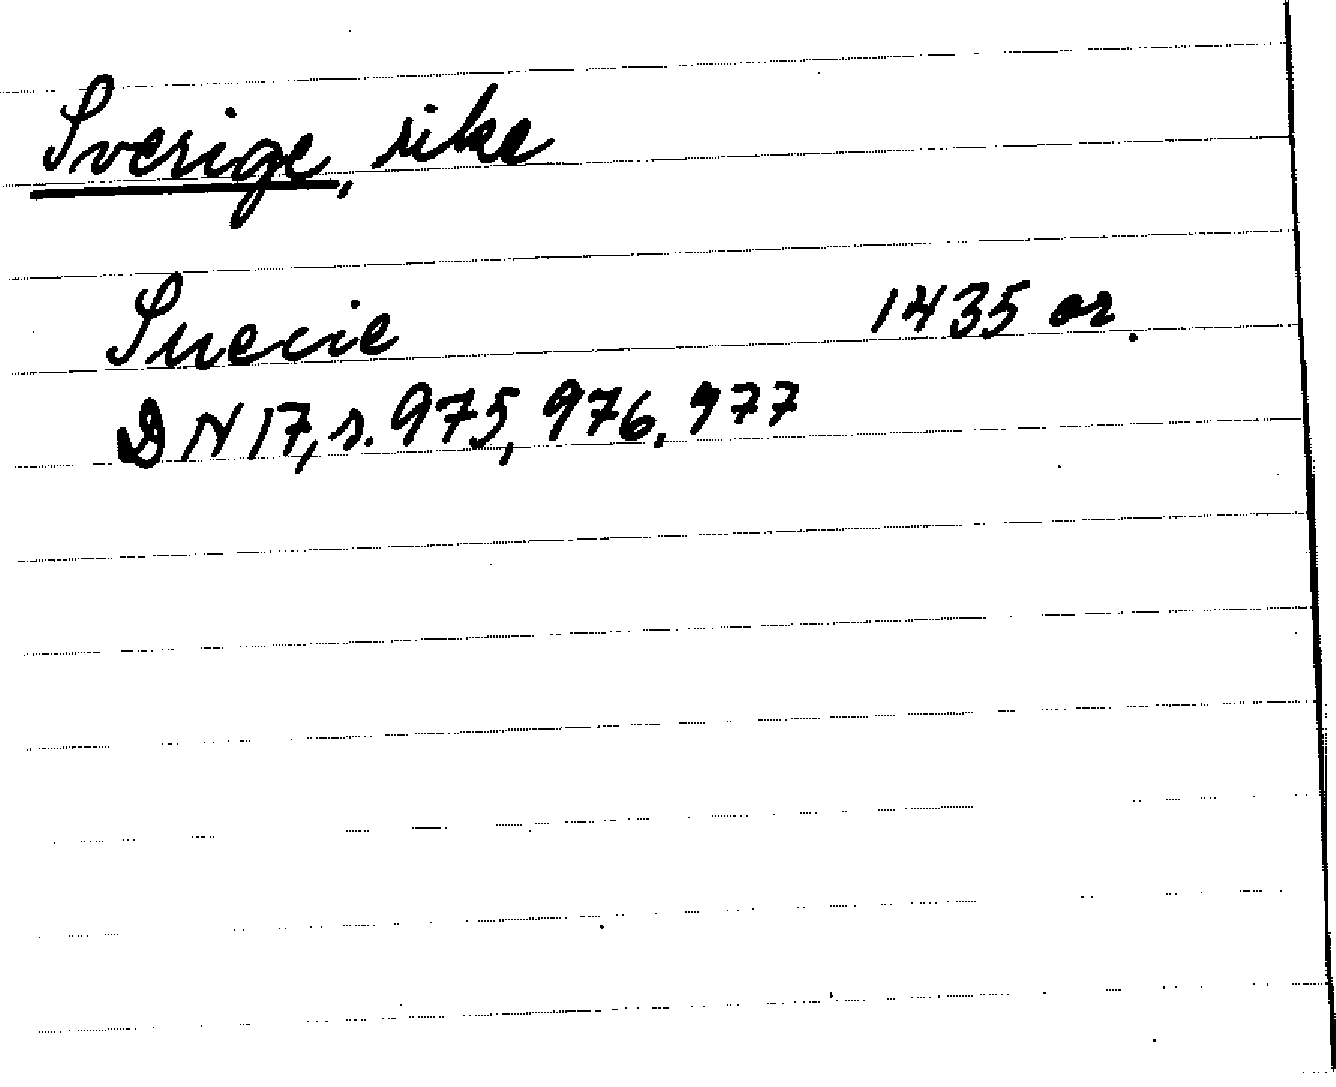 Sverige, rike
Suecie 1435 or.
DN 17, s. 975, 976, 977